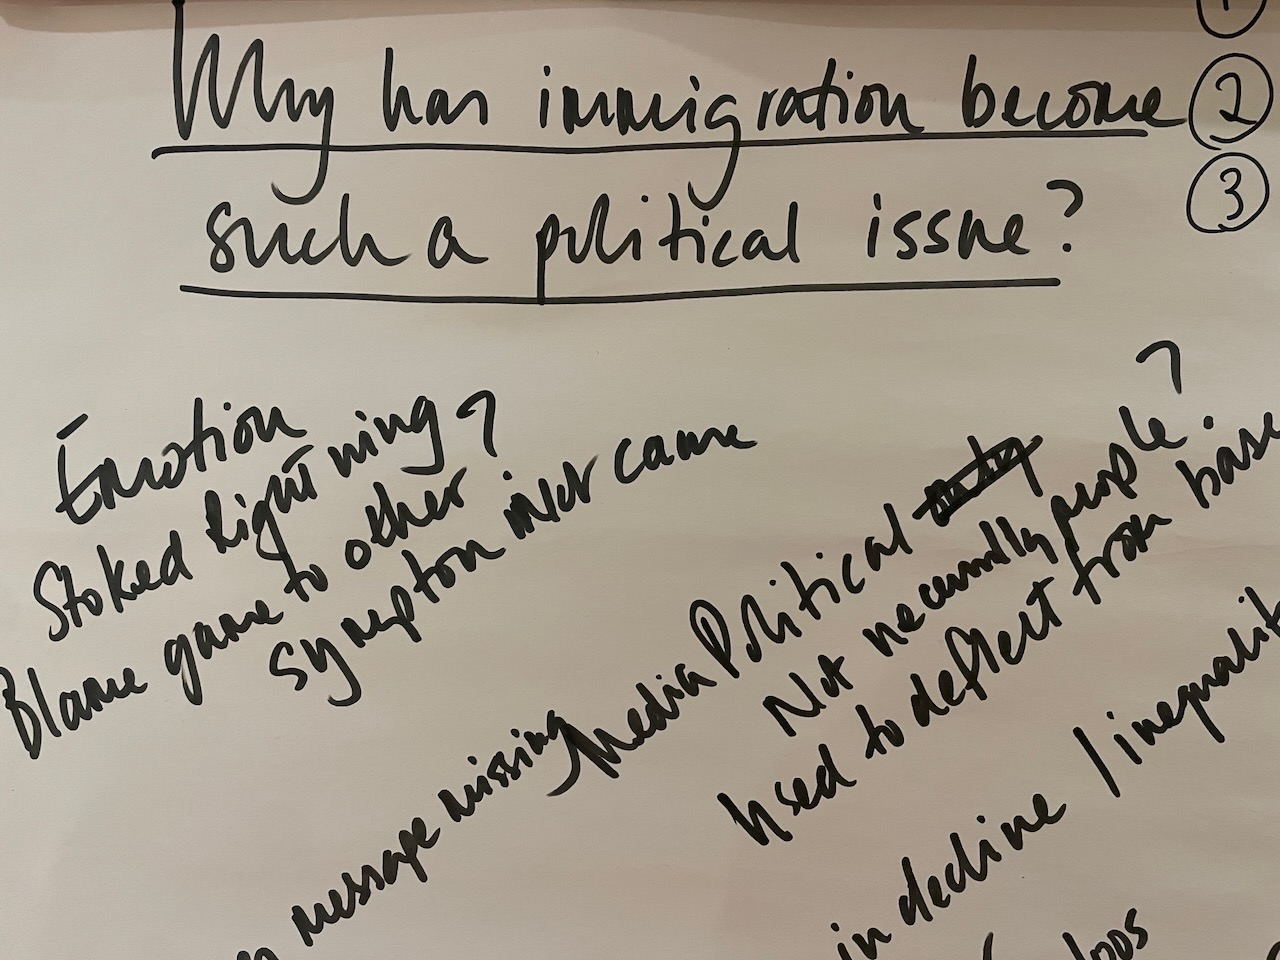 Why has immigration become
such a political issue?
①
②
③
Emotion
Stoked Right wing?
Blame game to other
symptom not cause
Media Political
Not necessarily people?
Used to deflect from base
message missing
in decline / inequalit